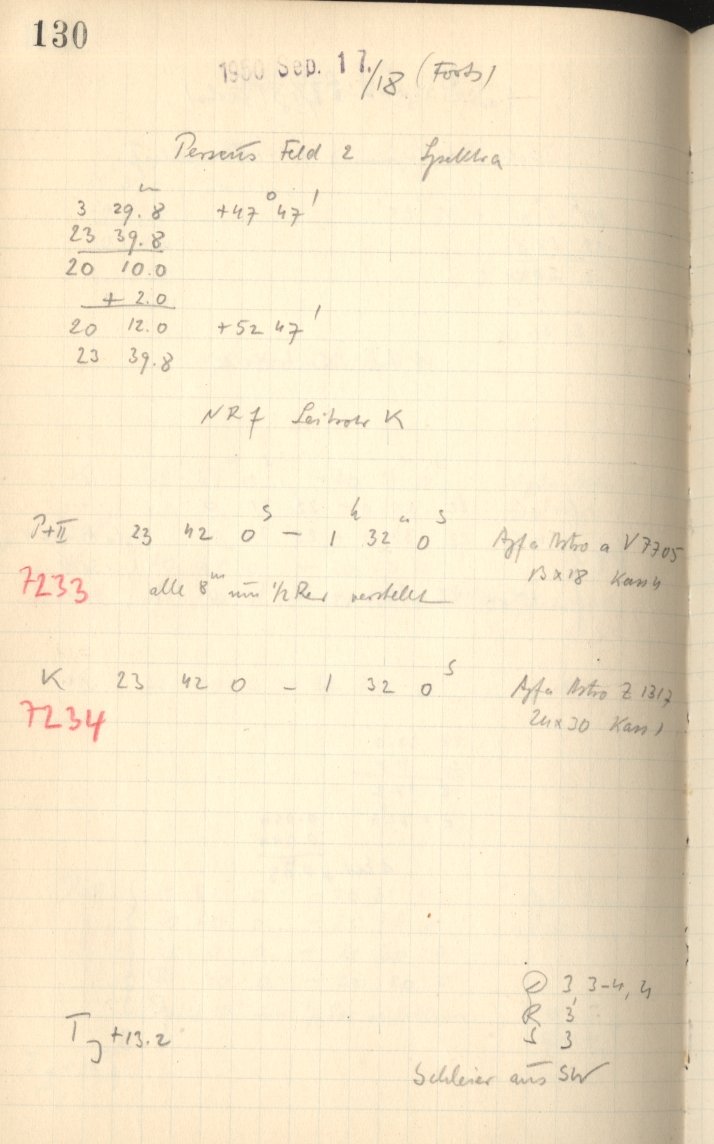 130
1950 Sep. 17./18 (Forts)
Perseus Feld 2 Spektra
3 29.8 m +47° 47'
23 39.8
20 10.0
+ 2.0
20 12.0 +52 47'
23 39.8
NR 7 Leitrohr K
P+II 23 42 0 s – 1 h 32 m 0 s Agfa Astro a V 7705
7233 alle 8 m um 1/2 Rev verstellt 13x18 Kass 4
K 23 42 0 – 1 32 0 s Agfa Astro Z 1317
7234 24x30 Kass 1
3, 3-4, 4
R 3
T J +13.2 S 3
Schleier aus SW